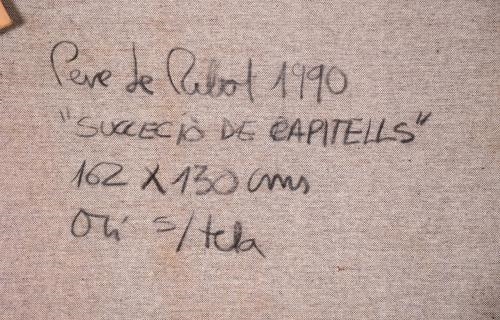 Pere de Ribot 1990
"SUCCECIÒ DE CAPITELLS"
162 X 130 cms
Oli s/tela